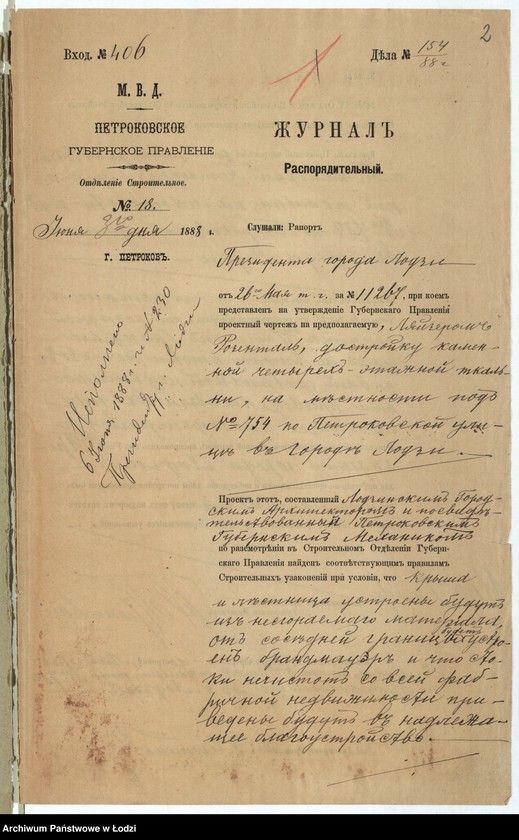 2
Вход. № 406
Дѣла № 154/88 г.
М. В. Д.
ПЕТРОКОВСКОЕ
ГУБЕРНСКОЕ ПРАВЛЕНІЕ
Отдѣленіе Строительное.
№ 18.
Июня 3го дня 1888 г.
Г. ПЕТРОКОВЪ.
ЖУРНАЛЪ
Распорядительный.
Слушали: Рапортъ
Президента города Лодзи
отъ 26го Мая т. г. за № 11267, при коемъ
представленъ на утвержденіе Губернскаго Правленія
проектный чертежъ на предполагаемую, Лейзеромъ
Розенталь, достройку камен-
ной четырехъ-этажной ткаль-
ни, на мѣстности подъ
№ 754 по Петроковской ули-
цѣ въ городѣ Лодзи.
Исполнено
6 Июня 1888 г. за № 230
Президенту г. Лодзи
Проектъ этотъ, составленный Лодзинскимъ Город-
скимъ Архитекторомъ и посвидѣ-
тельствованный Петроковскимъ
Губернскимъ Механикомъ
по разсмотрѣніи въ Строительномъ Отдѣленіи Губерн-
скаго Правленія найденъ соотвѣтствующимъ правиламъ
Строительныхъ узаконеній при условіи, что крыша
и лѣстница устроены будутъ
изъ несгораемаго матеріала,
отъ сосѣдней границы будетъ устро-
енъ брандмауэръ и что сто-
ки нечистотъ со всей фаб-
ричной недвижимости при-
ведены будутъ въ надлежа-
щее благоустройство.
Archiwum Państwowe w Łodzi